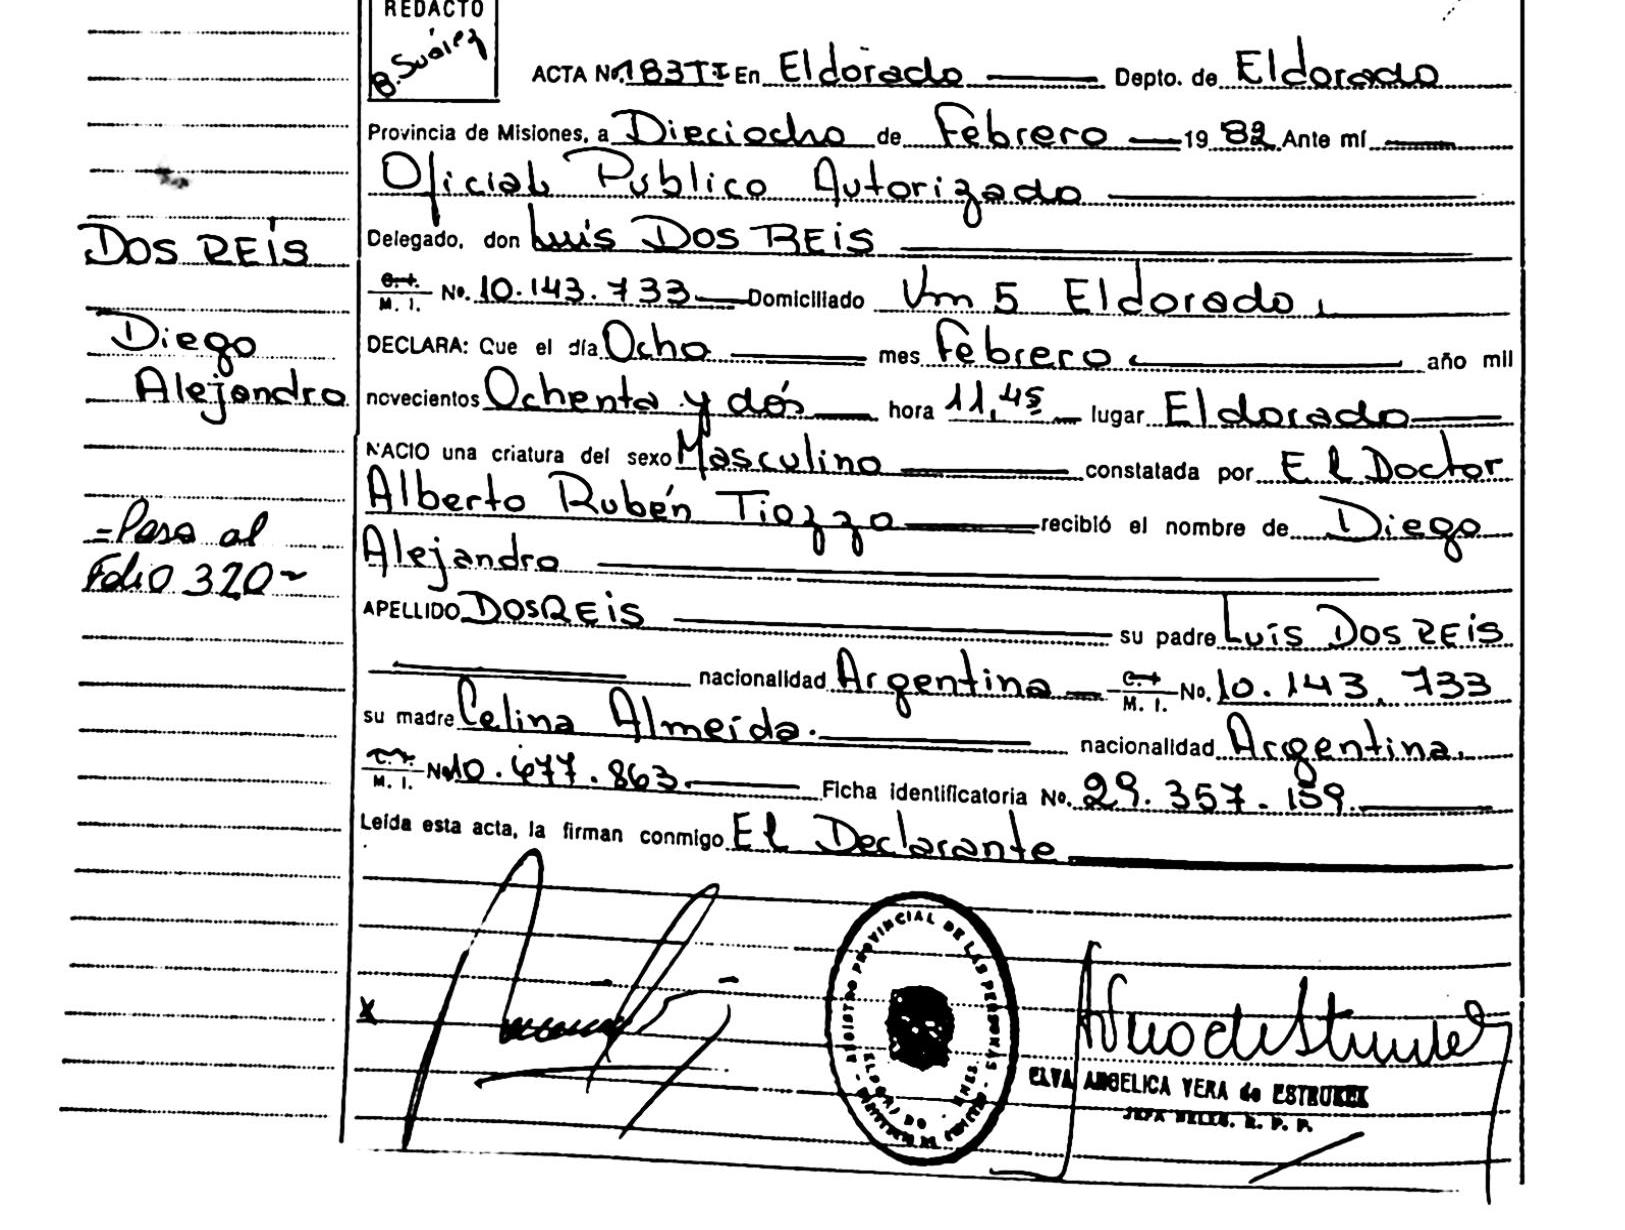 REDACTO
B. Suárez
ACTA No. 183TI En Eldorado Depto. de Eldorado
Provincia de Misiones, a Dieciocho de Febrero 19 82 Ante mí
Oficial Publico Autorizado
DOS REÍS
Delegado, don Luis DOS REIS
M. I. No. 10.143.733 Domiciliado Km 5 Eldorado
Diego
DECLARA: Que el día Ocho mes Febrero año mil
Alejandro
novecientos Ochenta y dós hora 11,45 lugar Eldorado
NACIO una criatura del sexo Masculino constatada por El Doctor
Alberto Rubén Tiozzo recibió el nombre de Diego
=Pasa al
Alejandro
Folio 320
APELLIDO DOS REIS su padre Luís DOS REIS
nacionalidad Argentina M. I. No. 10.143.733
su madre Celina Almeída. nacionalidad Argentina.
M. I. No 10.677.863 Ficha identificatoria No. 29.357.159
Leída esta acta, la firman conmigo El Declarante
X
REGISTRO PROVINCIAL DE LAS PERSONAS
ELDORADO MNES.
ELVA ANGELICA VERA de ESTRUKEK
R. P. P.